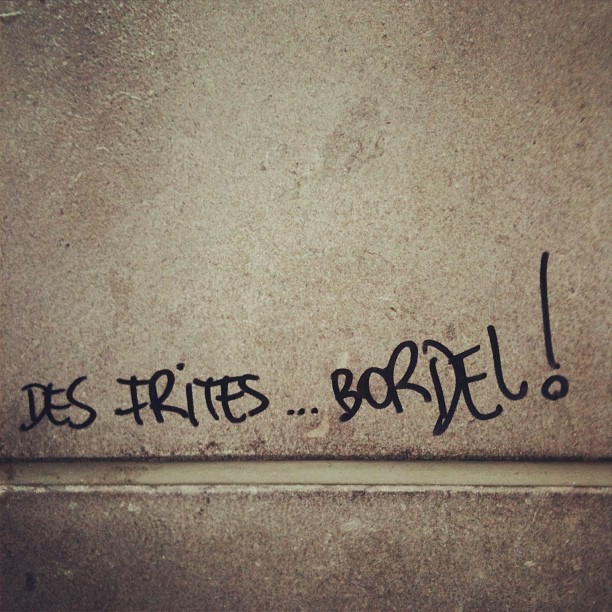 DES FRITES ... BORDEL !